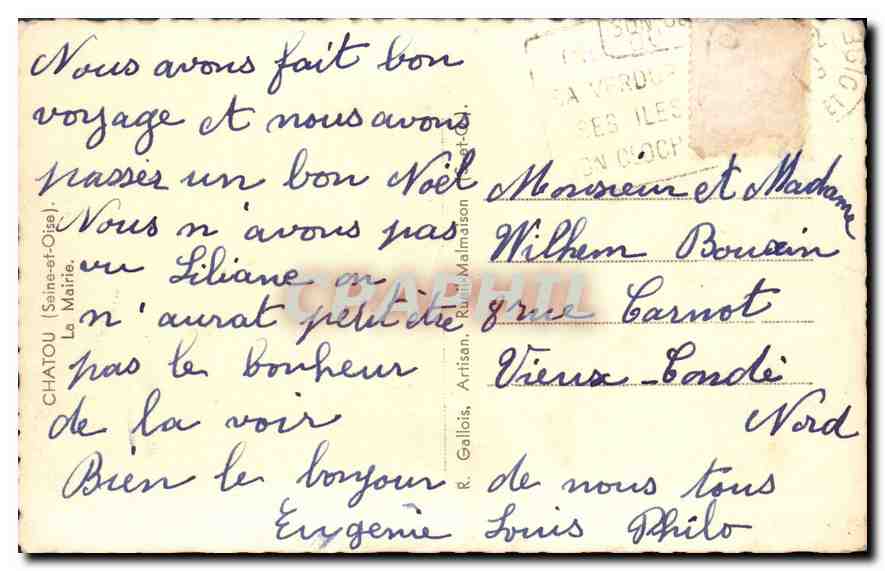 Nous avons fait bon
voyage et nous avons
passés un bon Noël
Nous n'avons pas
vu Liliane on
n'aurat petit être
pas le bonheur
de la voir
Bien le bonjour de nous tous
Eugénie Louis Philo
Monsieur et Madame
Wilhem Bouxin
8 rue Carnot
Vieux-Condé
Nord
CHATOU (Seine-et-Oise).
La Mairie.
R. Gallois, Artisan, Rueil-Malmaison (S.-et-O.).
SA VERDUR
SES ILES
SON CLOCH
CPAPHIL